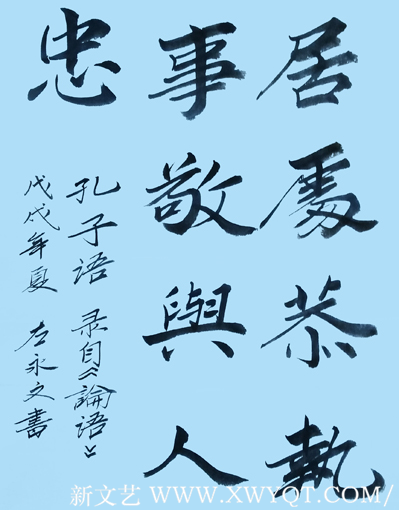 居處恭執
事敬與人
忠
孔子语 录自《論语》
戊戌年夏 左永文書
新文艺 WWW.XWYQT.COM/